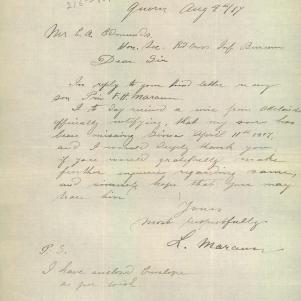 Quorn Aug 8th/17
Mr C. A. Edmunds.
Hon. Sec. Rd Cross Inf Bureau
Dear Sir
In reply to your kind letter re my
son Priv F. H. Marcum
I to day received a wire from Adelaide
officially notifying, that my son has
been missing since April 11th 1917,
and I would deeply thank you
if you would gratefully make
further inquiries regarding same,
and sincerely hope that you may
trace him
Yours
most respectfully
L. Marcum
P. S.
I have enclosed envelope
as per wish